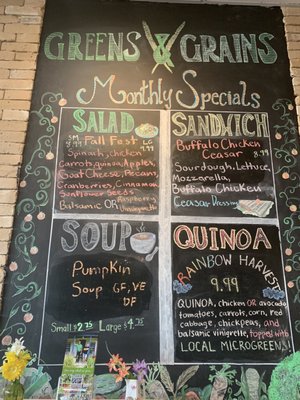 GREENS & GRAINS
Monthly Specials
SALAD
SM 8.99
LG 9.99
Fall Fest
Spinach, chicken
Carrots, quinoa, Apples,
Goat Cheese, Pecans,
Cranberries, Cinnamon
Sunflower Seeds
Balsamic OR Raspberry
Vinaigrette
SANDWICH
Buffalo Chicken
Ceasar 8.99
Sourdough, Lettuce,
Mozzarella,
Buffalo Chicken
Ceasar Dressing
SOUP
Pumpkin
Soup GF, VE
DF
Small $2.75 Large $4.75
QUINOA
RAINBOW HARVEST
9.99
QUINOA, chicken OR avocado
tomatoes, carrots, corn, red
cabbage, chickpeas, and
balsamic vinigrette, topped with
LOCAL MICROGREENS!